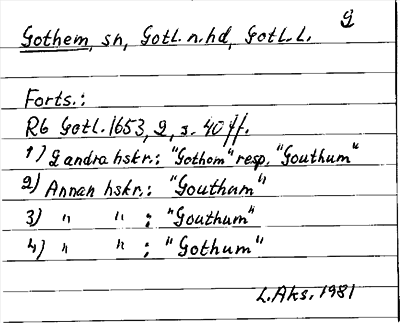 2
Gothem, sn, Gotl. n. hd, Gotl. L.
Forts.:
Rb Gotl. 1653, 2, s. 40 ff.
1) 2 andra hskr.: "Gothom" resp. "Gouthum"
2) Annan hskr.: "Gouthum"
3) " " : "Gouthum"
4) " " : "Gothum"
L. Aks. 1981